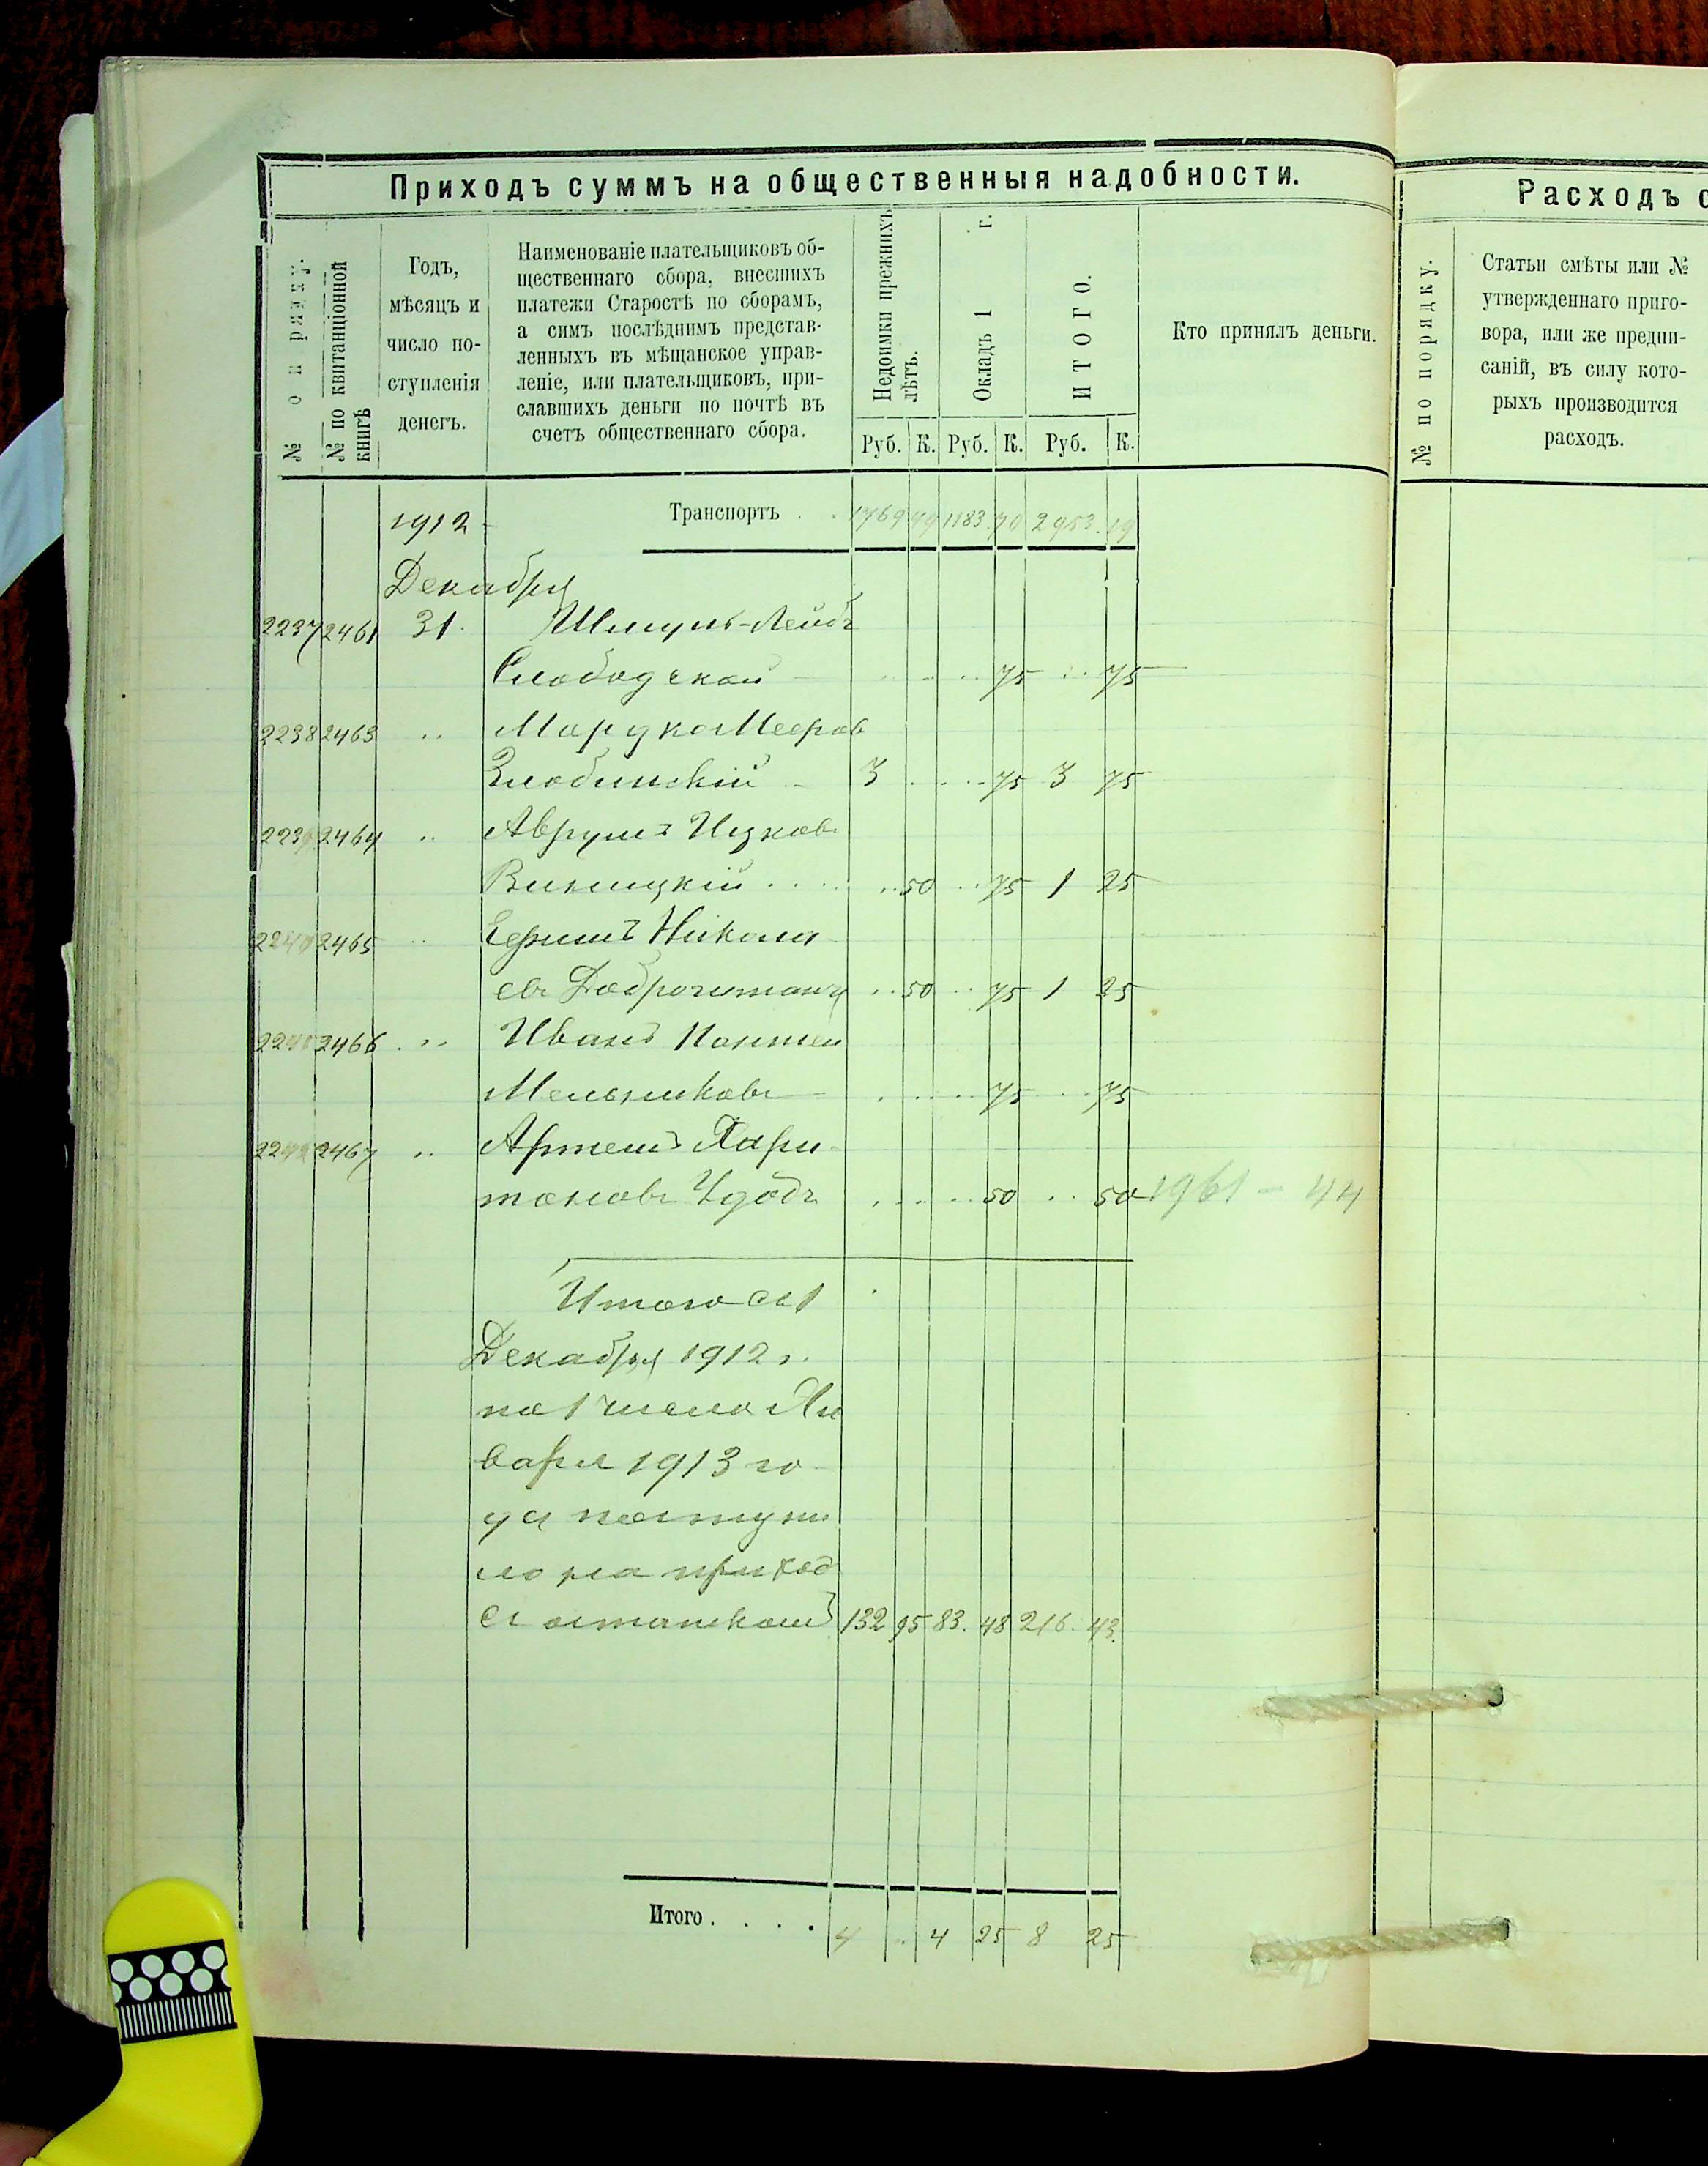 Приходъ суммъ на общественныя надобности.
№ по рядку.
№ по квитанціонной книгѣ
Годъ, мѣсяцъ и число поступленія денегъ.
Наименованіе плательщиковъ об-
щественнаго сбора, внесшихъ
платежи Старостѣ по сборамъ,
а симъ послѣднимъ представ-
ленныхъ въ мѣщанское управ-
леніе, или плательщиковъ, при-
славшихъ деньги по почтѣ въ
счетъ общественнаго сбора.
Недоимки прежнихъ лѣтъ.
Окладъ 1 г.
ИТОГО.
Руб. К. Руб. К. Руб. К.
Кто принялъ деньги.
1912 Транспортъ . . 1769 49 1183. 70 2953. 19
Декабря
2237 2461 31. Шмуль-Лейбъ
Слободской 75 75
2238 2463 Мордко Мееров
Злобинскій 3 75 3 75
2239 2464 Аврумъ Ицков
Виницкій . . . 50 75 1 25
2240 2465 Ефимъ Никола
евъ Доброчитанъ 50 75 1 25
2241 2466 Иванъ Пантел
Мельниковъ 75 75
2242 2467 Артемъ Хари
тоновъ Чудобъ 50 50 1961 - 44
Итого съ 1
Декабря 1912 г.
по 1 число Ян
варя 1913 го
да поступи
ло на приход
съ остаткомъ 132 95 83. 48 216. 43.
Итого . . . . 4 4 25 8 25
Расходъ с
№ по порядку.
Статьи смѣты или №
утвержденнаго приго-
вора, или же предпи-
саній, въ силу кото-
рыхъ производится
расходъ.